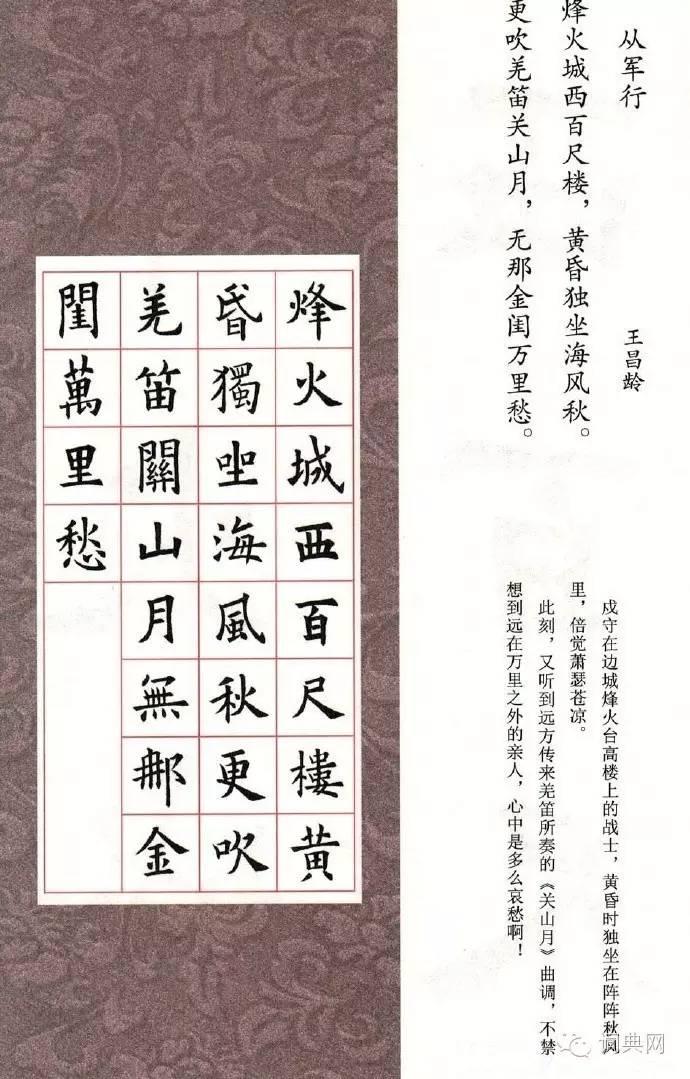 从军行
王昌龄
烽火城西百尺楼，黄昏独坐海风秋。
更吹羌笛关山月，无那金闺万里愁。
戍守在边城烽火台高楼上的战士，黄昏时独坐在阵阵秋风
里，倍觉萧瑟苍凉。
此刻，又听到远方传来羌笛所奏的《关山月》曲调，不禁
想到远在万里之外的亲人，心中是多么哀愁啊！
烽火城西百尺樓黄
昏獨坐海風秋更吹
羌笛關山月無那金
閨萬里愁
词典网